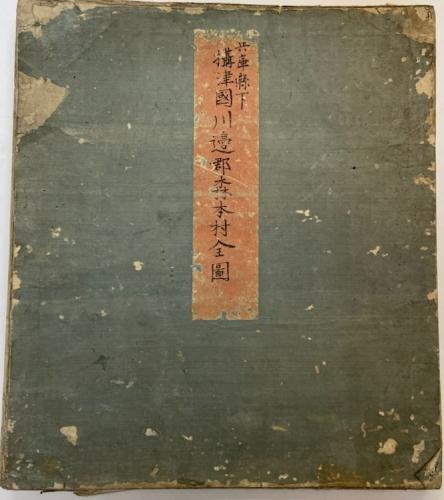 兵庫縣下
攝津國川邊郡森本村全圖